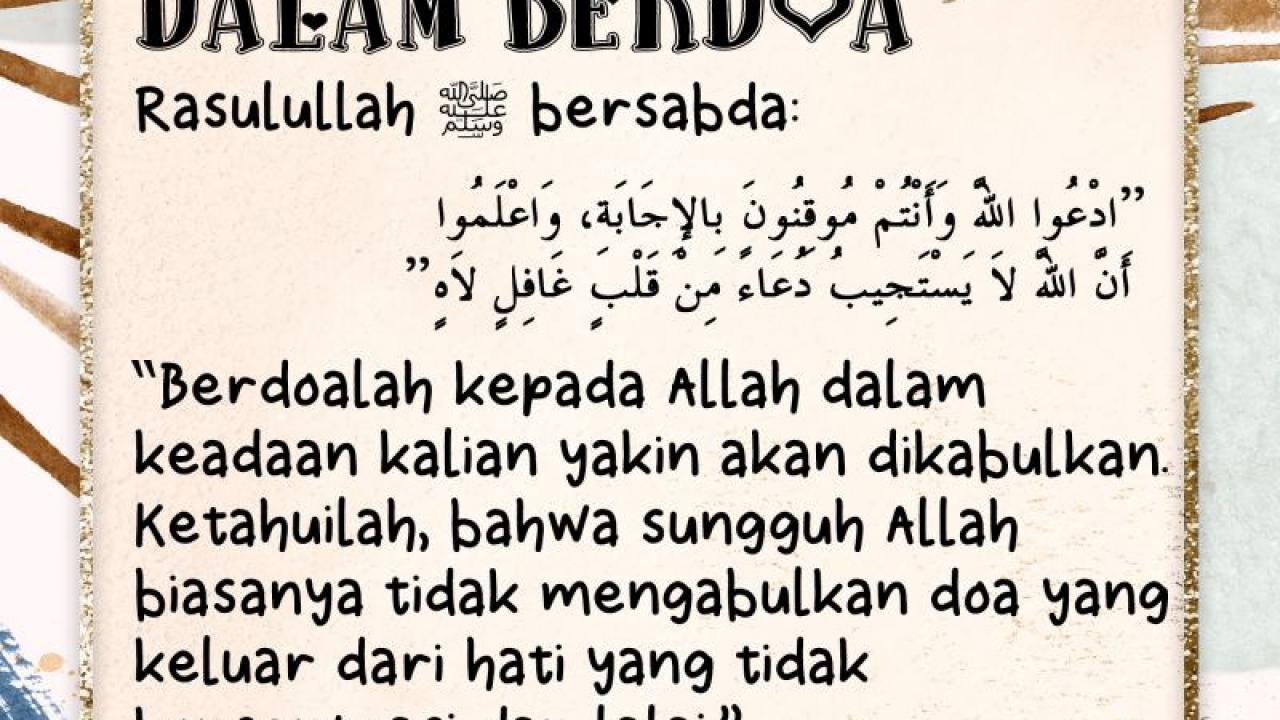 DALAM BERDOA
Rasulullah ﷺ bersabda:
”ادْعُوا اللهَ وَأَنْتُمْ مُوقِنُونَ بِالإِجَابَةِ، وَاعْلَمُوا
أَنَّ اللهَ لاَ يَسْتَجِيبُ دُعَاءً مِنْ قَلْبٍ غَافِلٍ لاَهٍ”
“Berdoalah kepada Allah dalam
keadaan kalian yakin akan dikabulkan.
Ketahuilah, bahwa sungguh Allah
biasanya tidak mengabulkan doa yang
keluar dari hati yang tidak
dan lalai.”